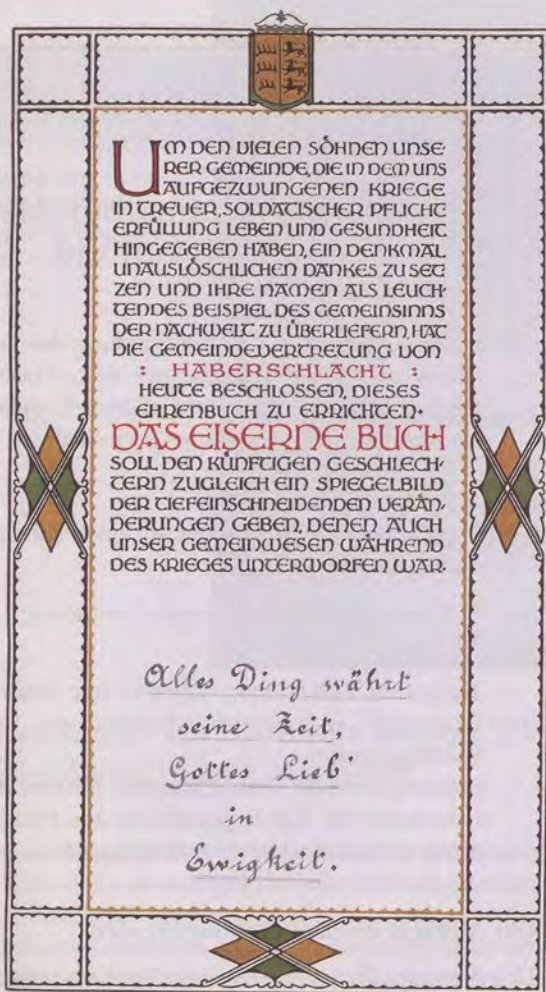 UM DEN VIELEN SÖHNEN UNSE-
RER GEMEINDE, DIE IN DEM UNS
AUFGEZWUNGENEN KRIEGE
IN TREUER, SOLDATISCHER PFLICHT
ERFÜLLUNG LEBEN UND GESUNDHEIT
HINGEGEBEN HABEN, EIN DENKMAL
UNAUSLÖSCHLICHEN DANKES ZU SET
ZEN UND IHRE NAMEN ALS LEUCH-
TENDES BEISPIEL DES GEMEINSINNS
DER NACHWELT ZU ÜBERLIEFERN, HAT
DIE GEMEINDEVERTRETUNG VON
: HABERSCHLACHT :
HEUTE BESCHLOSSEN, DIESES
EHRENBUCH ZU ERRICHTEN.
DAS EISERNE BUCH
SOLL DEN KÜNFTIGEN GESCHLECH-
TERN ZUGLEICH EIN SPIEGELBILD
DER TIEFEINSCHNEIDENDEN VERÄN-
DERUNGEN GEBEN, DENEN AUCH
UNSER GEMEINWESEN WÄHREND
DES KRIEGES UNTERWORFEN WAR.
Alles Ding währt
seine Zeit,
Gottes Lieb'
in
Ewigkeit.